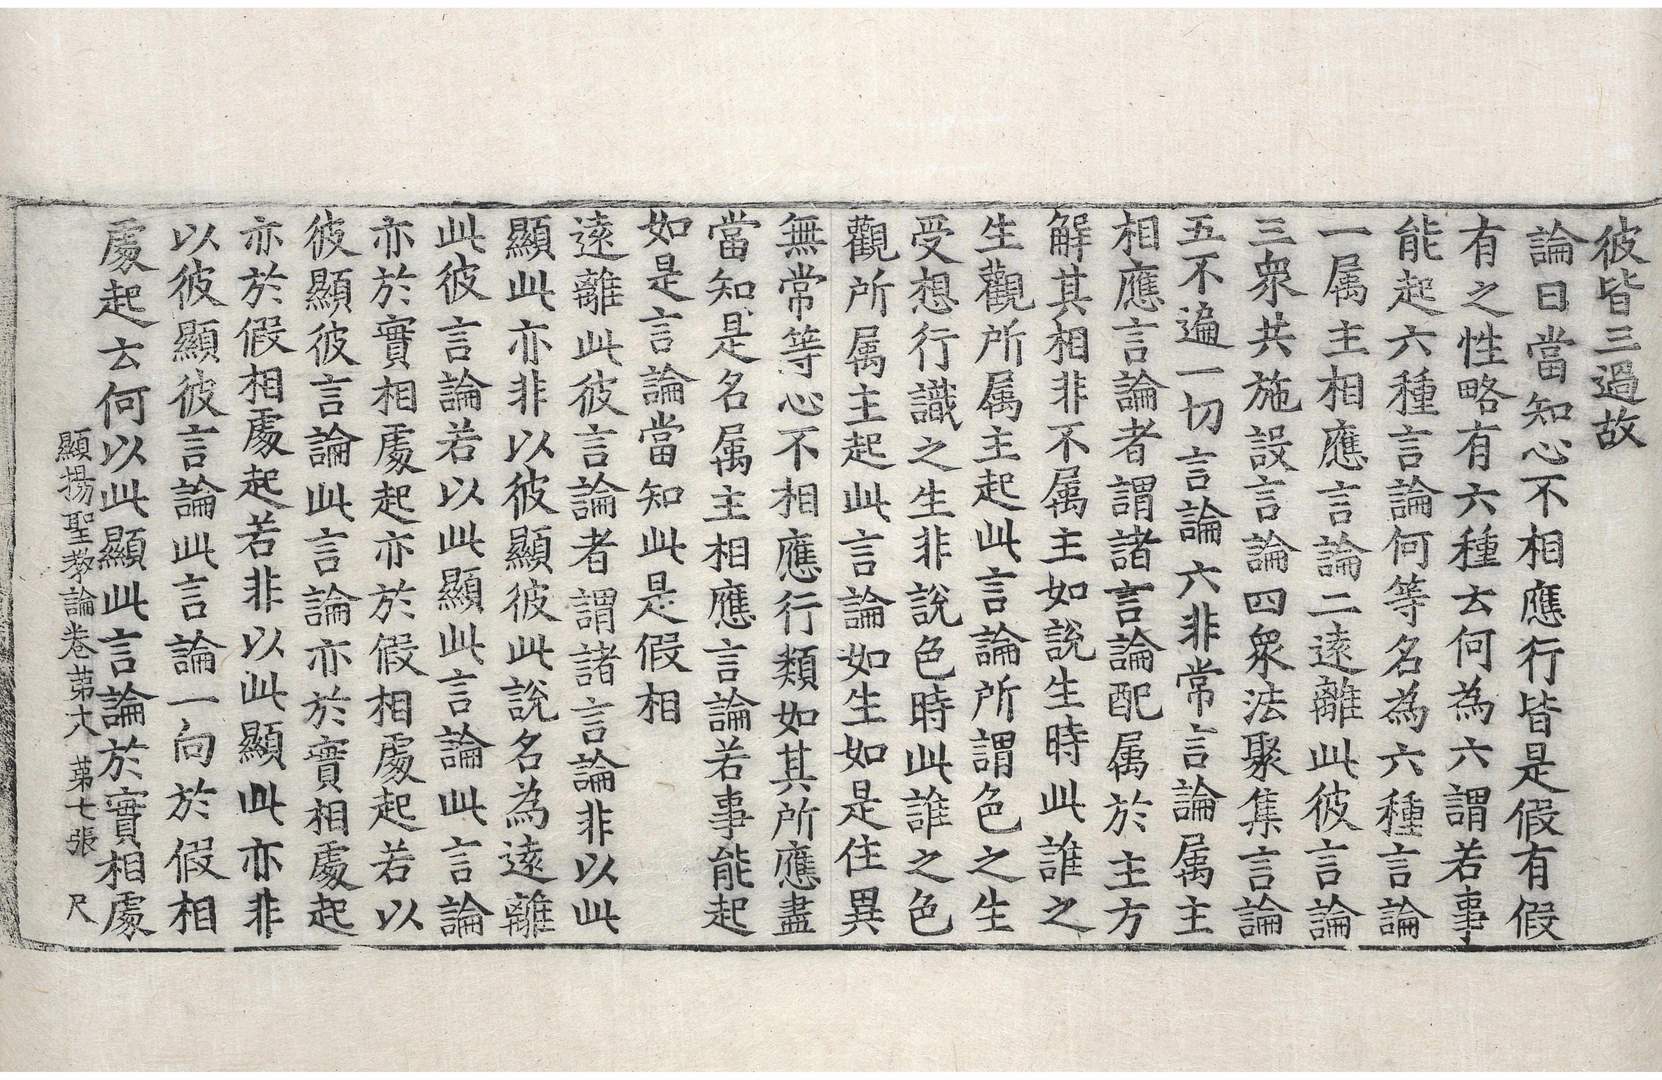 彼皆三過故
論曰當知心不相應行皆是假有假
有之性略有六種云何為六謂若事
能起六種言論何等名為六種言論
一属主相應言論二遠離此彼言論
三衆共施設言論四衆法聚集言論
五不遍一切言論六非常言論属主
相應言論者謂諸言論配属於主方
解其相非不属主如說生時此誰之
生觀所属主起此言論所謂色之生
受想行識之生非說色時此誰之色
觀所属主起此言論如生如是住異
無常等心不相應行類如其所應盡
當知是名属主相應言論若事能起
如是言論當知此是假相
遠離此彼言論者謂諸言論非以此
顯此亦非以彼顯彼此說名為遠離
此彼言論若以此顯此言論此言論
亦於實相處起亦於假相處起若以
彼顯彼言論此言論亦於實相處起
亦於假相處起若非以此顯此亦非
以彼顯彼言論此言論一向於假相
處起云何以此顯此言論於實相處
顯揚聖教論卷第十八 第七張 尺